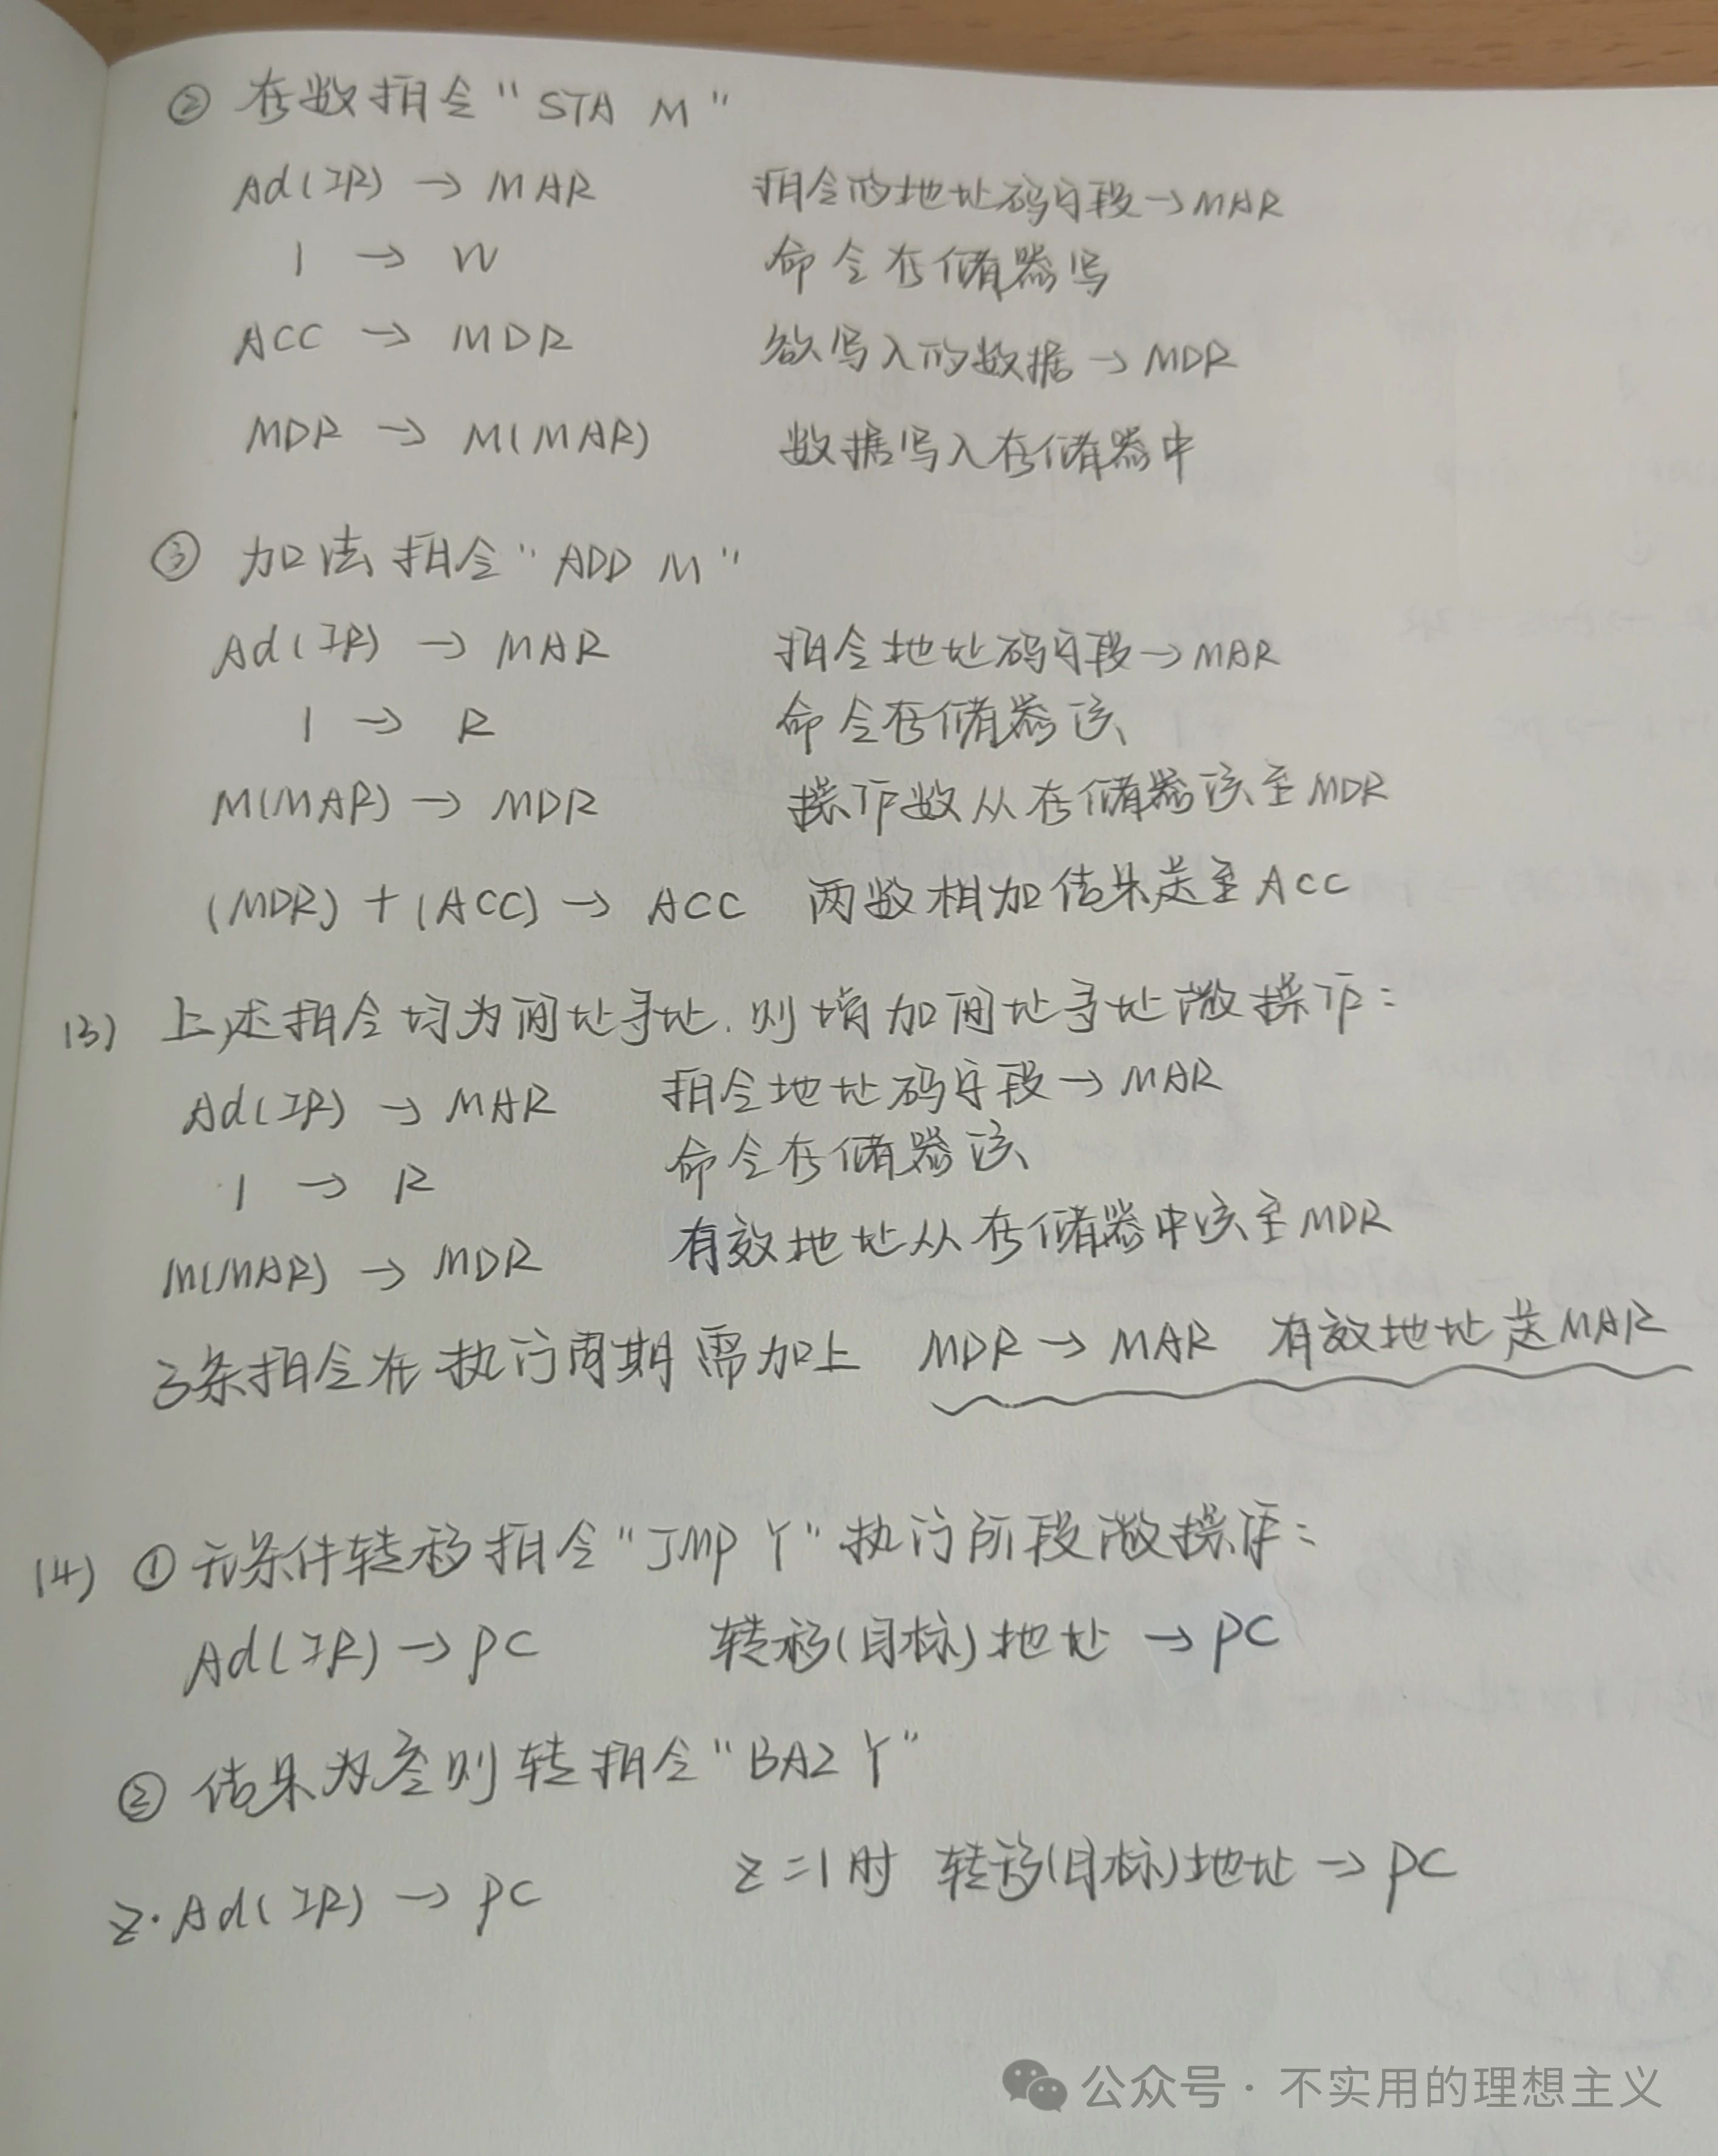 ② 存数指令“STA M”
Ad(IR) → MAR 指令的地址码字段→MAR
1 → W 命令存储器写
ACC → MDR 欲写入的数据→MDR
MDR → M(MAR) 数据写入存储器中
③ 加法指令“ADD M”
Ad(IR) → MAR 指令地址码字段→MAR
1 → R 命令存储器读
M(MAR) → MDR 操作数从存储器读至MDR
(MDR) + (ACC) → ACC 两数相加结果送至ACC
(3) 上述指令均为间址寻址.则增加间址寻址微操作:
Ad(IR) → MAR 指令地址码字段→MAR
1 → R 命令存储器读
M(MAR) → MDR 有效地址从存储器中读至MDR
3条指令在执行周期需加上 MDR → MAR 有效地址送MAR
(4) ①无条件转移指令“JMP Y”执行阶段微操作:
Ad(IR) → PC 转移(目标)地址 → PC
② 结果为零则转指令“BAZ Y”
Z·Ad(IR) → PC Z=1时 转移(目标)地址 → PC
公众号·不实用的理想主义